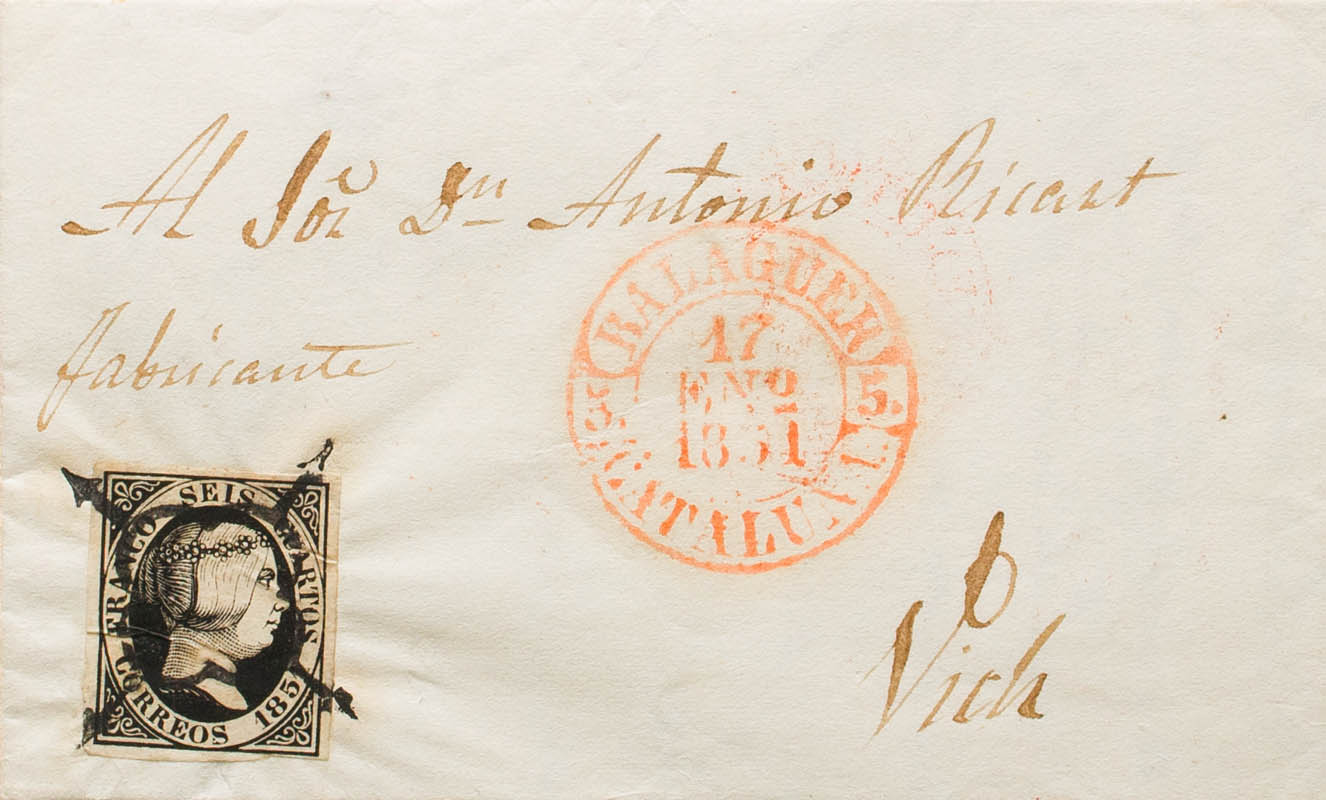 Al Sor Dn Antonio Ricart
fabricante
BALAGUER
17
ENO
1851
5.
CATALUÑA
FRANCO SEIS CUARTOS
CORREOS 1851
Vich